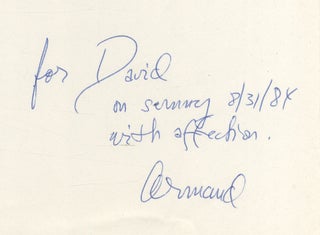 for David
on 8/31/84
with affection.
Armand